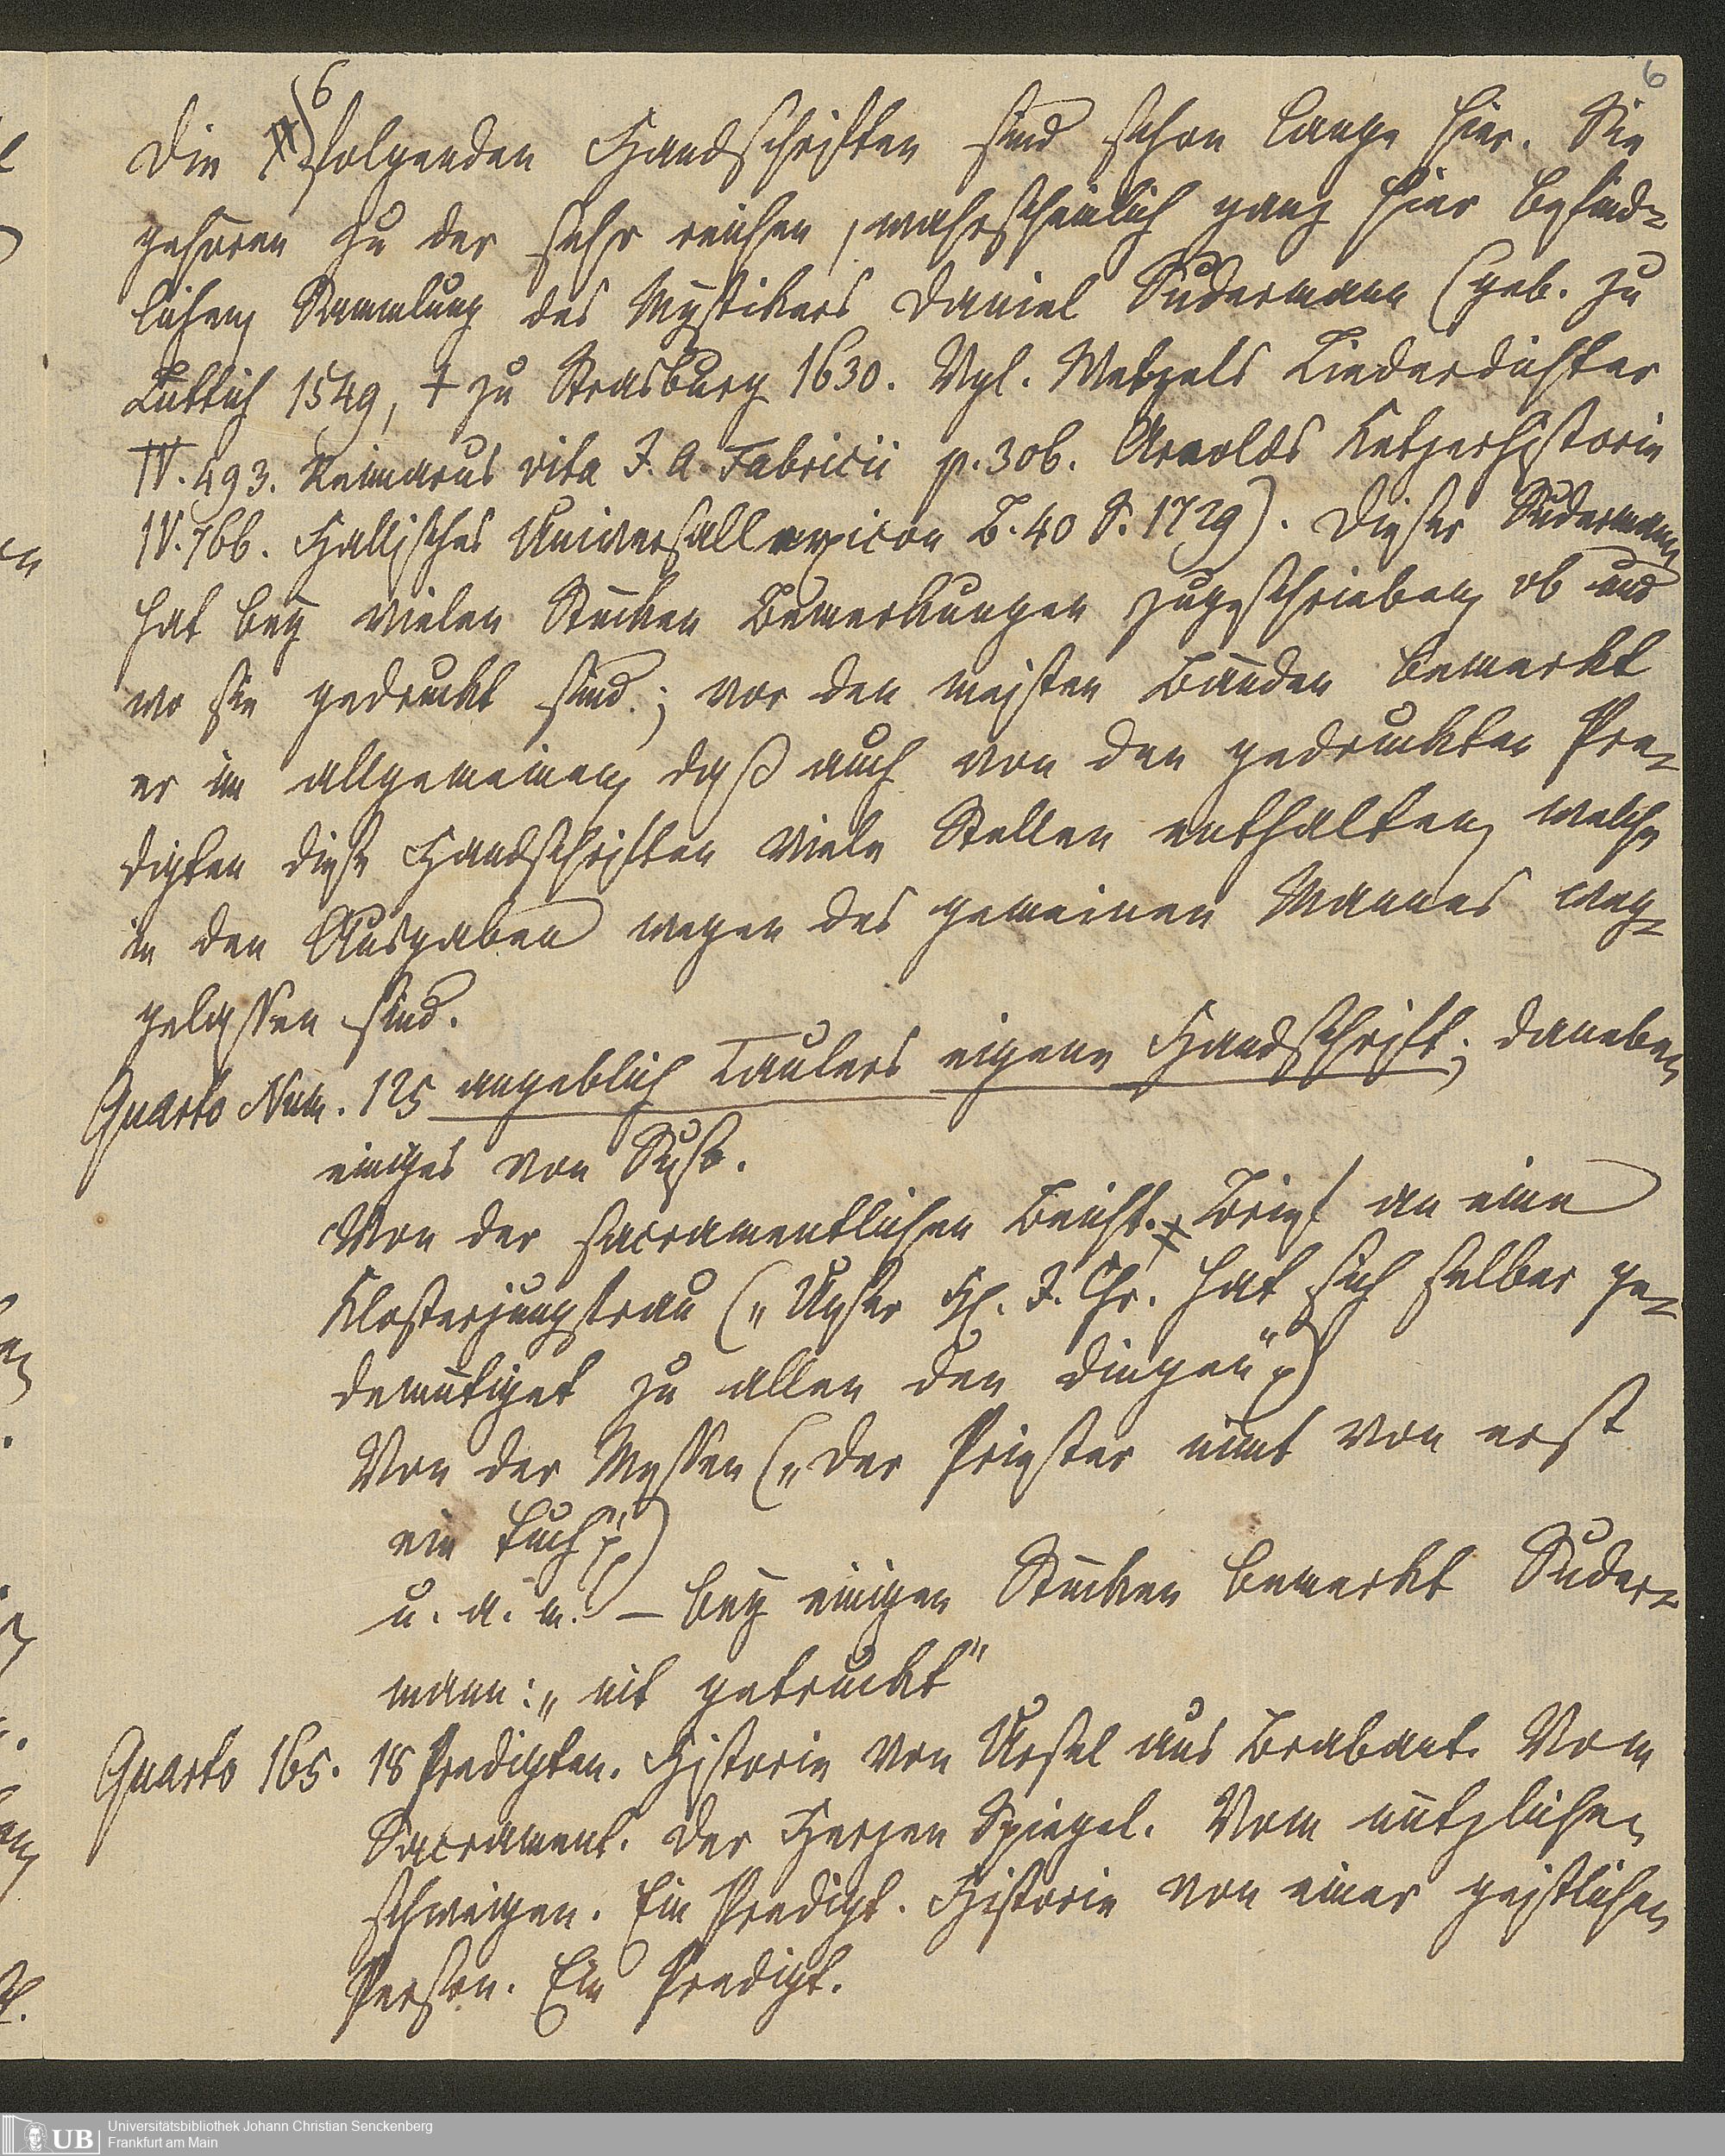 6
6
Die folgenden Handschriften sind schon lange hier. Sie
gehören zu der sehr reichen, wahrscheinlich ganz hier befind-
lichen Sammlung des Mystikers Daniel Sudermann (geb. zu
Lüttich 1549, † zu Strasburg 1630. Vgl. Wetzels Liederdichter
IV. 493. Reimarus vita J. A. Fabricii p. 306. Arnolds Ketzerhistorie
IV. 766. Hallisches Universallexicon B. 40 S. 1729). Dieser Sudermann
hat bey vielen Stücken Bemerkungen zugeschrieben, ob und
wo sie gedruckt sind; vor den meisten Bänden bemerkt
er im allgemeinen, daß auch von den gedruckten Pre-
digten diese Handschriften viele Stellen enthalten, welche
in den Ausgaben wegen des gemeinen Mannes weg-
gelassen sind.
Quarto Num. 125 angeblich Taulers eigene Handschrift; daneben
einiges von Suso.
Von der sacramentlichen Beicht. Brief an eine
Klosterjungfrau („Unser H. J. Chr. hat sich selber ge-
demütiget zu allen den dingen")
Von der Messen („Der Priester nimt von erst
ein tuch")
u. a. m. – bey einigen Stücken bemerkt Suder-
mann: „nit getruckt"
Quarto 165. 18 Predigten. Historie von Ursel aus Brabant. Vom
Sacrament. Der Herzen Spiegel. Vom nützlichen
schweigen. Ein Predigt. Historie von einer geistlichen
Person. Ein Predigt.
UB Universitätsbibliothek Johann Christian Senckenberg
Frankfurt am Main